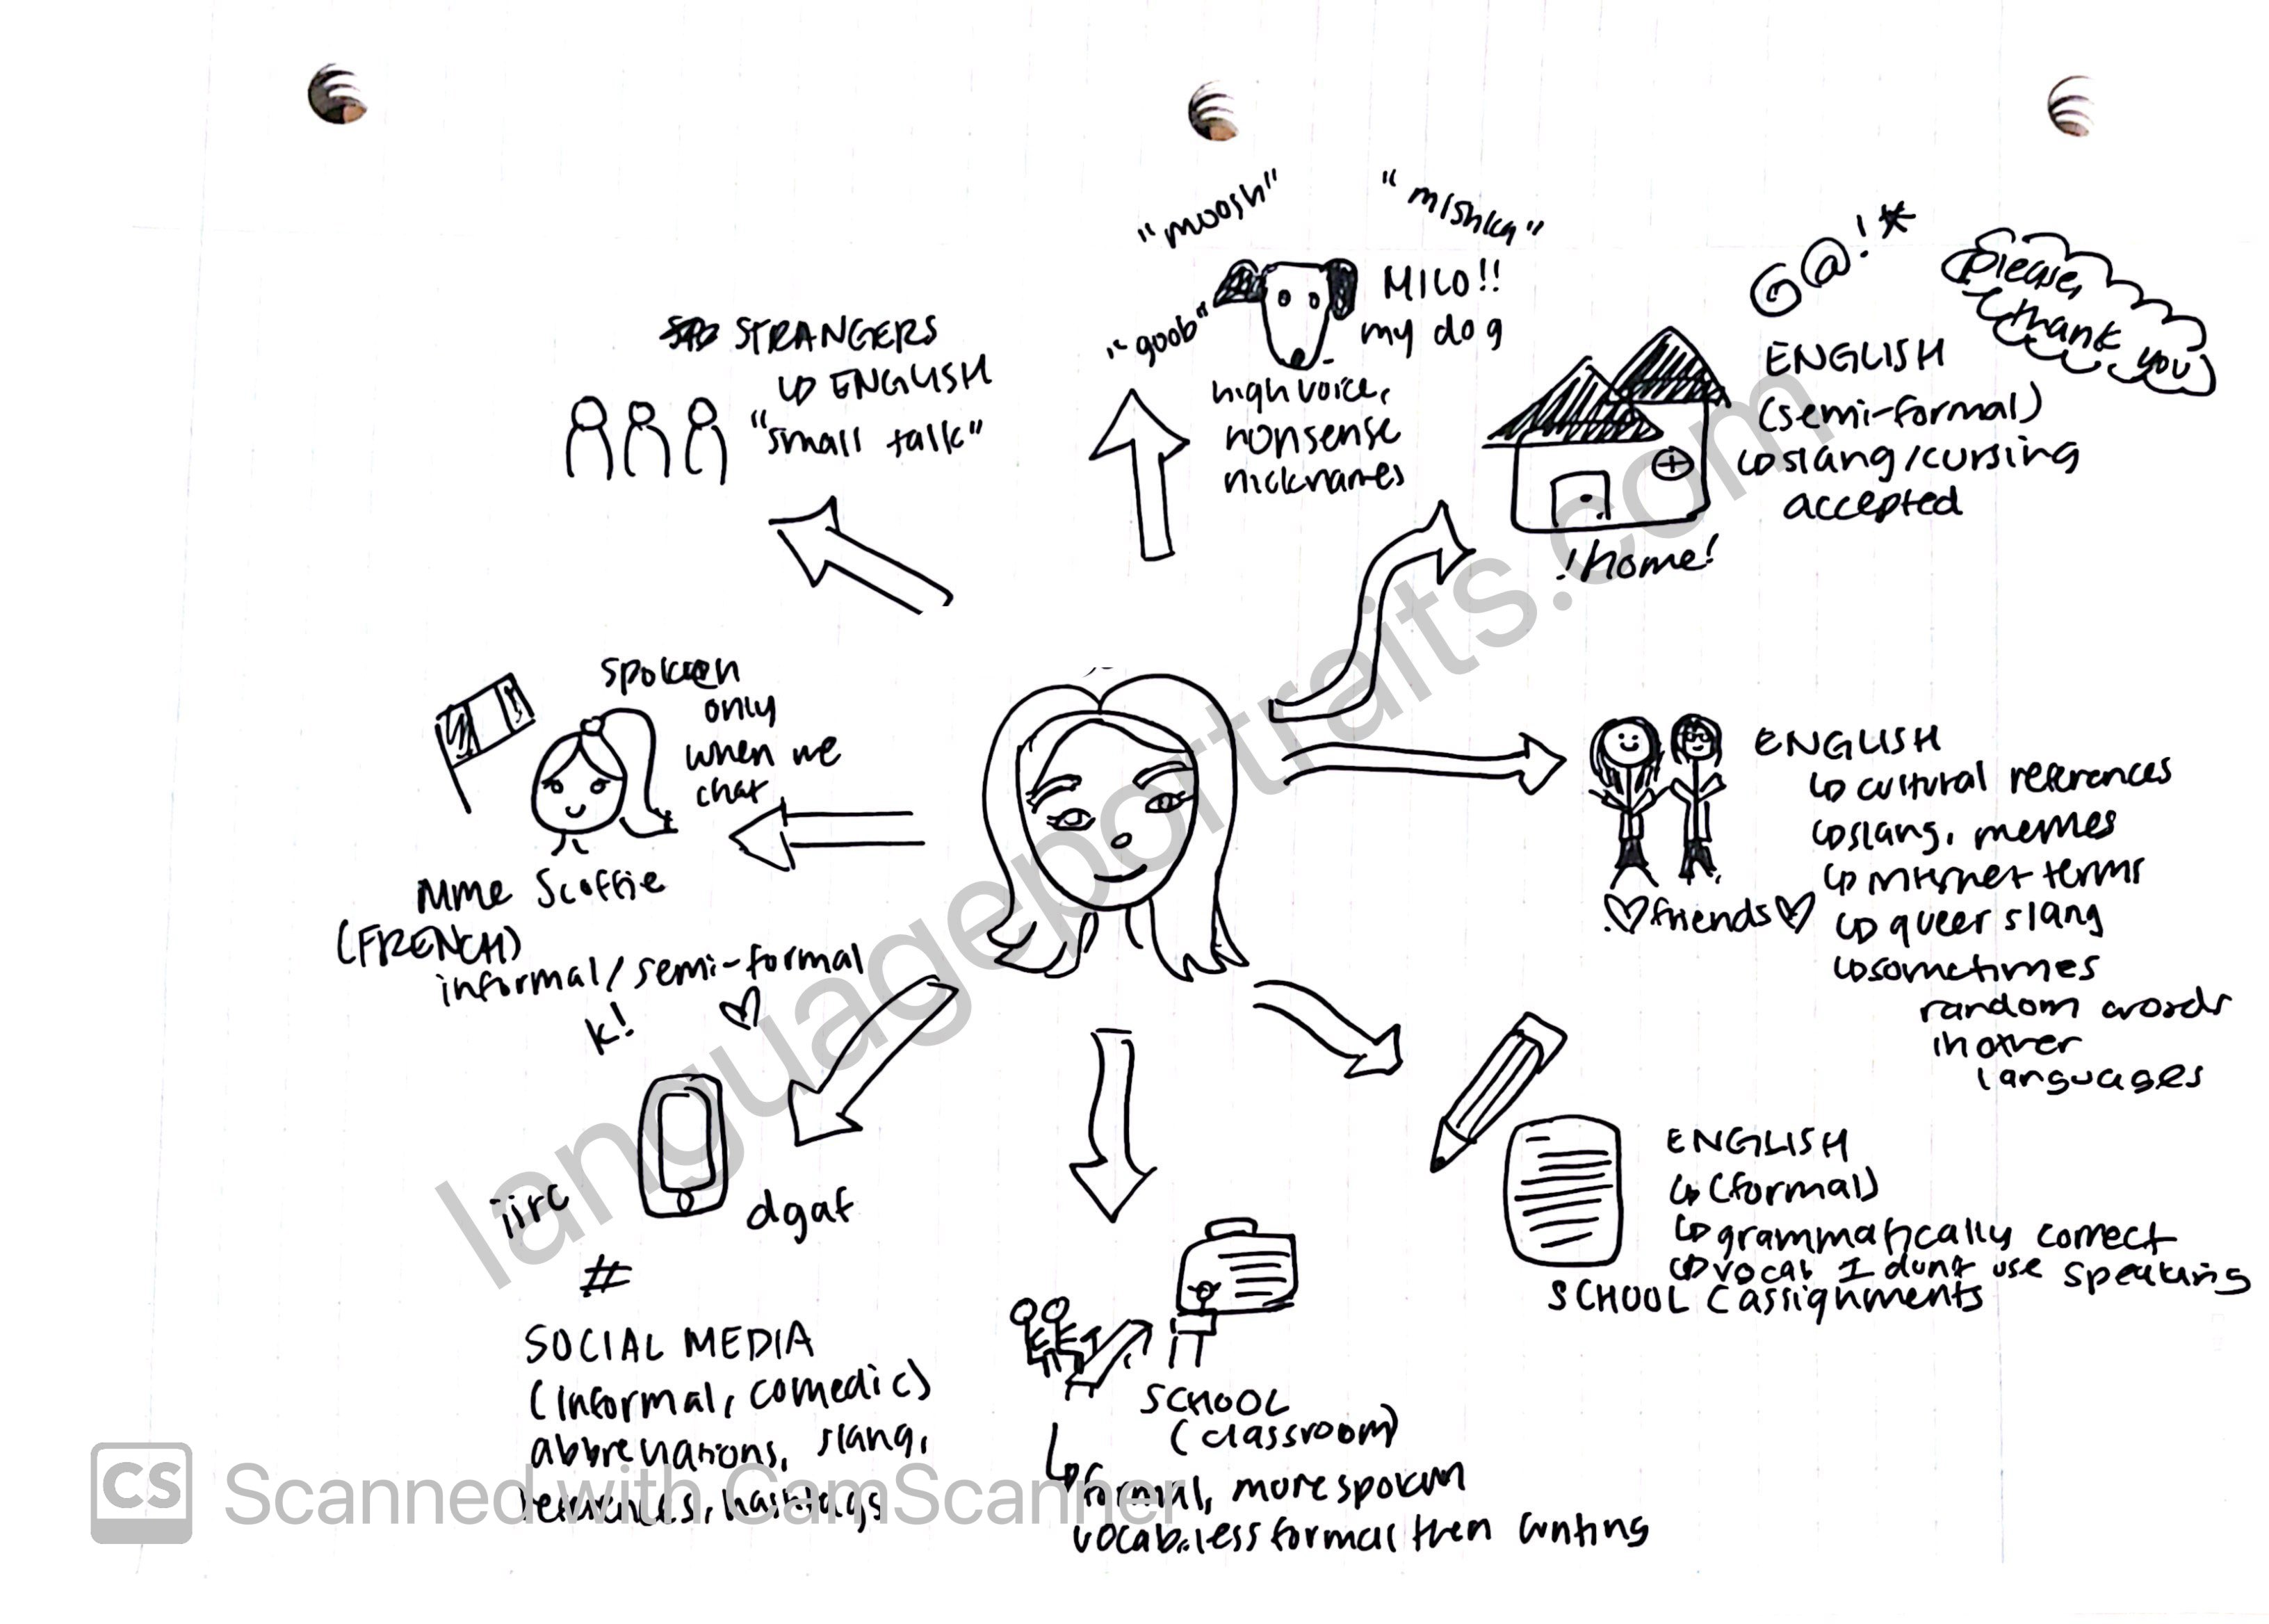 "moosh"
"mishka"
"goob"
MILO!!
my dog
high voice,
nonsense
nicknames
STRANGERS
ENGLISH
"small talk"
G@!*
please,
thank
you
ENGLISH
(semi-formal)
slang/cursing
accepted
!home!
spoken
only
when we
chat
Mme Scoffie
(FRENCH)
informal/semi-formal
ENGLISH
cultural references
slang, memes
internet terms
queer slang
sometimes
random words
in other
languages
friends
k!
iirc
dgaf
#
SOCIAL MEDIA
(informal, comedic)
abbreviations, slang,
references, hashtags
SCHOOL
(classroom)
formal, more spoken
vocab. less formal then writing
ENGLISH
(formal)
grammatically correct
vocab I dont use speaking
SCHOOL (assignments
languageportraits.com
CS Scanned with CamScanner